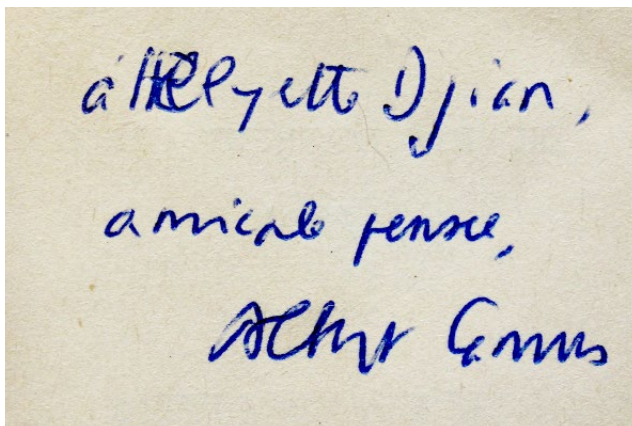 à Hélyette Djian,
amicale pensée,
Albert Camus